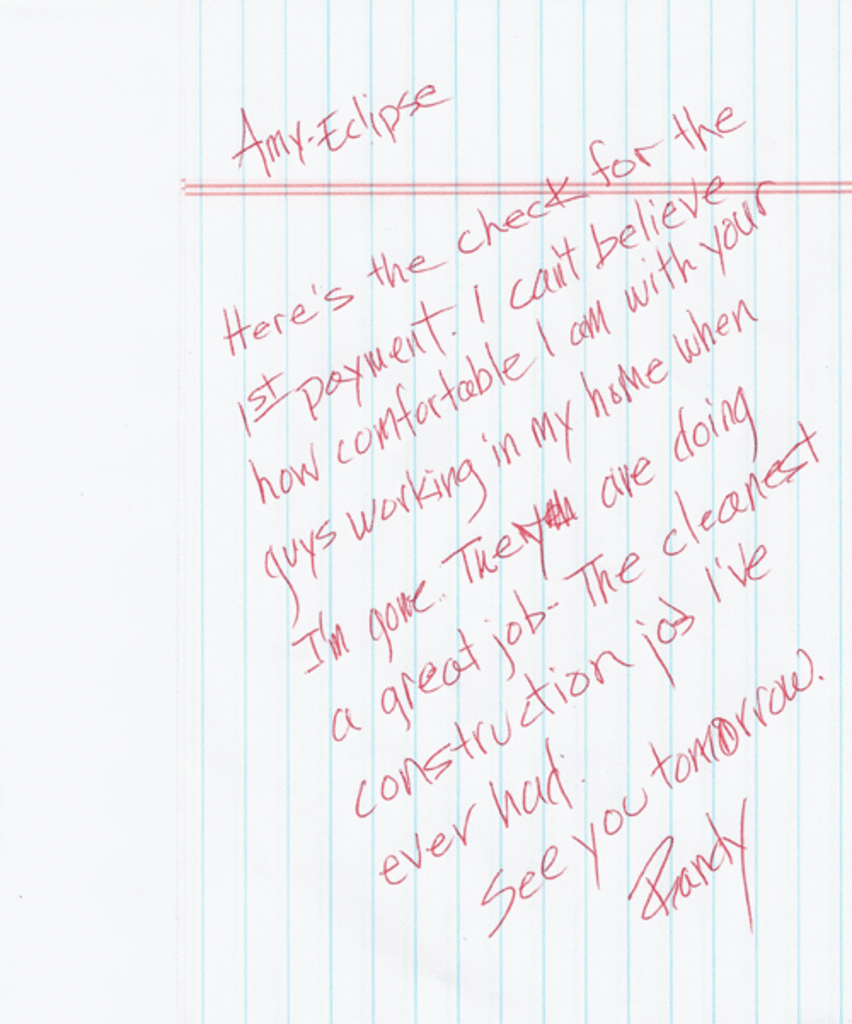 Amy-Eclipse
Here's the check for the
1st payment. I can't believe
how comfortable I am with your
guys working in my home when
I'm gone. They are doing
a great job- The cleanest
construction job I've
ever had.
See you tomorrow.
Randy